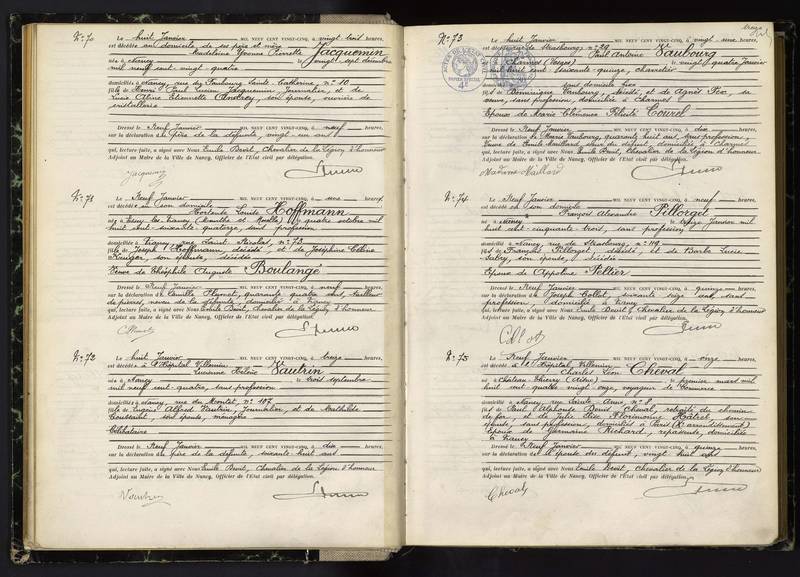 N° 70 Le huit Janvier MIL NEUF CENT VINGT-CINQ, à vingt trois heures,
est décédée au domicile de ses père et mère
Madeleine Yvonne Pierrette Jacquemin
née à Nancy le vingt sept décembre
mil neuf cent vingt quatre
domiciliée à Nancy, rue du Faubourg Sainte Catherine, n° 10
fille de Henri Paul Lucien Jacquemin, Journalier, et de
Lucie Aline Etiennette son épouse, ouvrière de
cristallerie
Dressé le Neuf Janvier MIL NEUF CENT VINGT-CINQ, à neuf heures,
sur la déclaration du père de la défunte, vingt un ans
qui, lecture faite, a signé avec Nous Emile Devit, Chevalier de la Légion d'honneur
Adjoint au Maire de la Ville de Nancy, Officier de l'Etat civil par délégation.
Jacquemin
N° 71 Le Neuf Janvier MIL NEUF CENT VINGT-CINQ, à une heures,
est décédée en son domicile
Hortense Louise Hoffmann
née à Nancy (Meurthe et Moselle) le quatre octobre mil
huit cent soixante quatorze, sans profession
domiciliée à Nancy, rue Saint Nicolas, n° 73
fille de Joseph Hoffmann, décédé et de Joséphine Céline
Kruger, son épouse, décédée
Veuve de Théophile Auguste Boulangé
Dressé le Neuf Janvier MIL NEUF CENT VINGT-CINQ, à neuf heures,
sur la déclaration de Camille quarante quatre ans, tailleur
de pierres, neveu de la défunte, domicilié à Nancy
qui, lecture faite, a signé avec Nous Emile Devit, Chevalier de la Légion d'honneur
Adjoint au Maire de la Ville de Nancy, Officier de l'Etat civil par délégation.
N° 72 Le huit Janvier MIL NEUF CENT VINGT-CINQ, à treize heures,
est décédée à l'Hôpital Villemin
Lucienne Héloïse Vautrin
née à Nancy le trois septembre
mil neuf cent quatre, sans profession
domiciliée à Nancy, rue du Montet, n° 107
fille de Eugène Alfred Vautrin, Journalier, et de Mathilde
Toussaint, son épouse, ménagère
Célibataire
Dressé le Neuf Janvier MIL NEUF CENT VINGT-CINQ, à dix heures,
sur la déclaration du père de la défunte, soixante huit ans
qui, lecture faite, a signé avec Nous Emile Devit, Chevalier de la Légion d'honneur
Adjoint au Maire de la Ville de Nancy, Officier de l'Etat civil par délégation.
Vautrin
N° 73 Le huit Janvier MIL NEUF CENT VINGT-CINQ, à vingt une heures,
est décédé rue de Strasbourg n° 29
Paul Antoine Vaubourg
né à Charmes (Vosges) le vingt quatre Janvier
mil huit cent soixante quinze,
sans domicile fixe
fils de Dominique Vaubourg, décédé, et de Agnès sa
veuve, sans profession, domiciliée à Charmes
Epoux de Marie Clémence Félicité Courel
Dressé le Neuf Janvier MIL NEUF CENT VINGT-CINQ, à dix heures,
sur la déclaration de Marie Vaubourg, quarante huit ans, sans profession,
Veuve de Emile Maillard, soeur du défunt, domiciliée à Charmes
qui, lecture faite, a signé avec Nous Emile Devit, Chevalier de la Légion d'honneur
Adjoint au Maire de la Ville de Nancy, Officier de l'Etat civil par délégation.
Madame Maillard
N° 74 Le Neuf Janvier MIL NEUF CENT VINGT-CINQ, à neuf heures,
est décédé en son domicile
François Alexandre Pillorget
né à Nancy le treize Janvier mil
huit cent cinquante trois, sans profession
domicilié à Nancy, rue de Strasbourg, n° 119
fils de François Pillorget, décédé, et de Barbe Lucie
son épouse, décédée
Epoux de Appoline Peltier
Dressé le Neuf Janvier MIL NEUF CENT VINGT-CINQ, à quinze heures,
sur la déclaration de Joseph Collet, soixante sept ans, sans
profession, domicilié à Nancy
qui, lecture faite, a signé avec Nous Emile Devit, Chevalier de la Légion d'honneur
Adjoint au Maire de la Ville de Nancy, Officier de l'Etat civil par délégation.
N° 75 Le Neuf Janvier MIL NEUF CENT VINGT-CINQ, à onze heures,
est décédé à l'Hôpital Villemin
Charles Léon Cheval
né à Château-Thierry (Aisne) le premier mars mil
huit cent quatre vingt onze, voyageur de Commerce
domicilié à Nancy, rue Sainte Anne, n° 8
fils de Paul Alphonse Denis Cheval, retraité du chemin
de fer, et de Julie Elise son
épouse, sans profession, domiciliés à Paris (X arrondissement)
Epoux de Germaine Richard, repasseuse, domiciliée
à Nancy
Dressé le Neuf Janvier MIL NEUF CENT VINGT-CINQ, à quinze heures,
sur la déclaration de l'épouse du défunt, vingt huit ans
qui, lecture faite, a signé avec Nous Emile Devit, Chevalier de la Légion d'honneur
Adjoint au Maire de la Ville de Nancy, Officier de l'Etat civil par délégation.
Cheval